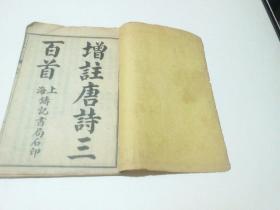 增註唐詩三
百首
上海鑄記書局石印